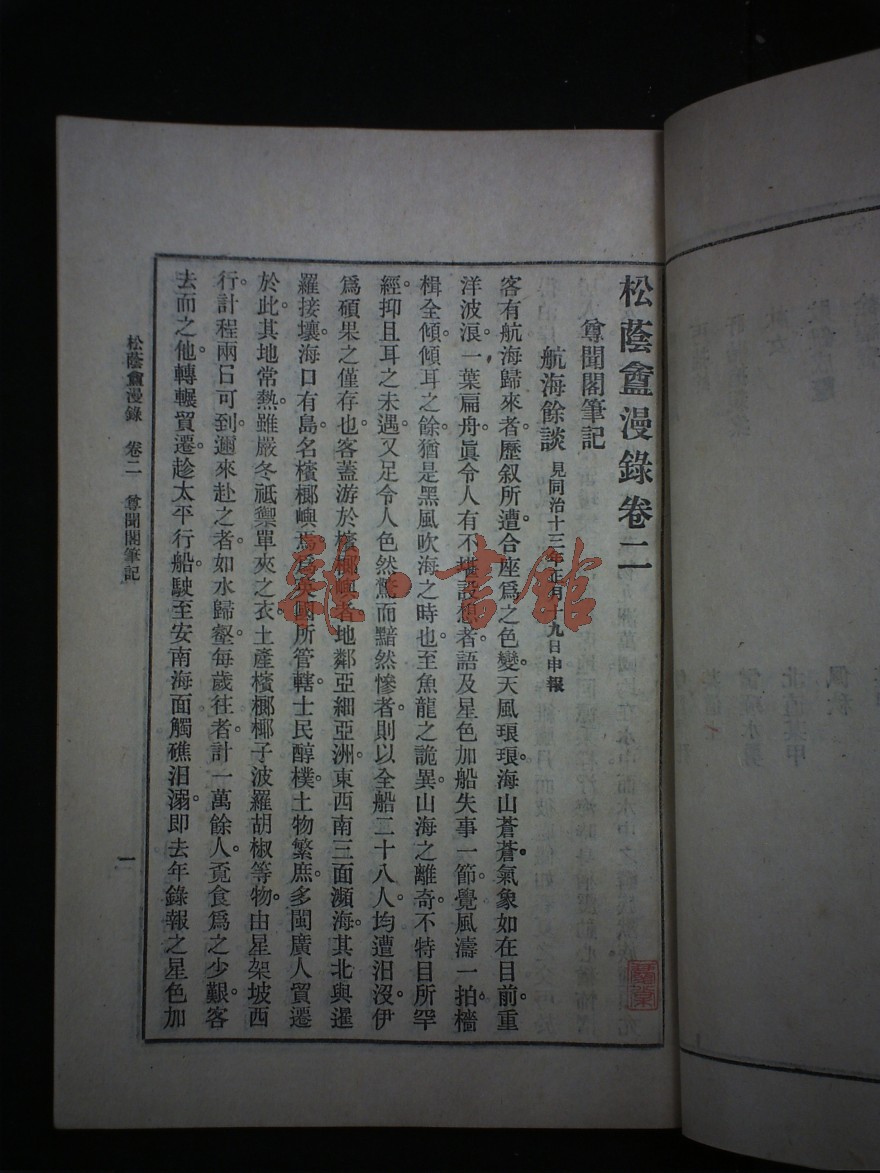 松蔭盦漫錄卷二
尊聞閣筆記
航海餘談 見同治十三年正月十九日申報
客有航海歸來者歷叙所遭合座爲之色變天風琅琅海山蒼蒼氣象如在目前重
洋波浪一葉扁舟眞令人有不堪設想者語及星色加船失事一節覺風濤一拍檣
楫全傾傾耳之餘猶是黑風吹海之時也至魚龍之詭異山海之離奇不特目所罕
經抑且耳之未遇又足令人色然驚而黯然慘者則以全船二十八人均遭汨沒伊
爲碩果之僅存也客蓋游於檳榔嶼者地鄰亞細亞洲東西南三面瀕海其北與暹
羅接壤海口有島名檳榔嶼焉爲英國所管轄士民醇樸土物繁庶多閩廣人貿遷
於此其地常熱雖嚴冬祗禦單夾之衣土產檳榔椰子波羅胡椒等物由星架坡西
行計程兩日可到邇來赴之者如水歸壑每歲往者計一萬餘人覓食爲之少艱客
去而之他轉輾貿遷趁太平行船駛至安南海面觸礁汨溺即去年錄報之星色加
松蔭盦漫錄 卷二 尊聞閣筆記
一
雜·書館